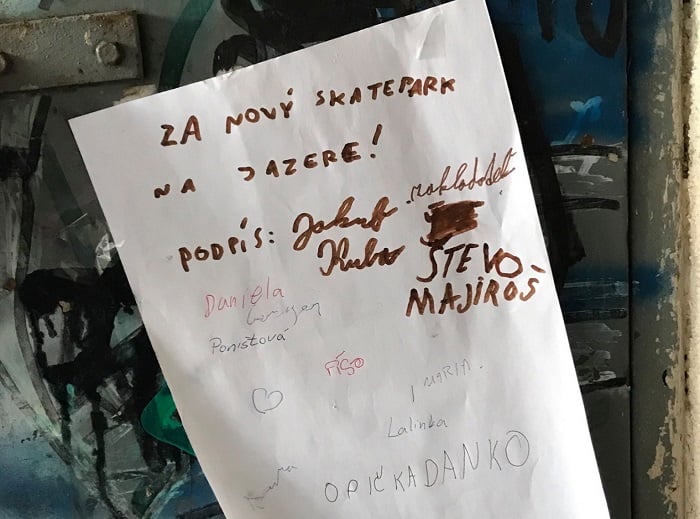 ZA NOVÝ SKATEPARK
NA JAZERE!
PODPÍS: Jakub
Kubo
ŠTEVO
MAJÍROŠ
Daniela
Poništová
MARIA.
Lalinka
OPIČKA DANKO